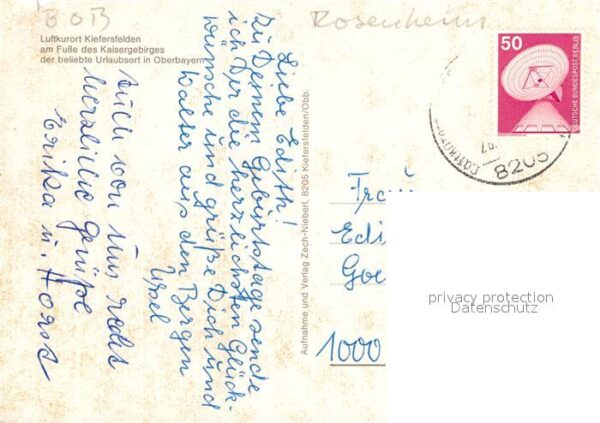 BOB
Rosenheim
Luftkurort Kiefersfelden
am Fuße des Kaisergebirges
der beliebte Urlaubsort in Oberbayern
Liebe Edith!
Zu Deinem Geburtstage sende
ich Dir die herzlichsten Glück-
wünsche und grüße Dich und
Walter aus den Bergen
Auch von uns recht
herzliche Grüße
Erika u. Horst
Aufnahme und Verlag Zech-Nieberl, 8205 Kiefersfelden/Obb.
50
DEUTSCHE BUNDESPOST BERLIN
8205
Frau
Edi
Goe
1000
privacy protection
Datenschutz